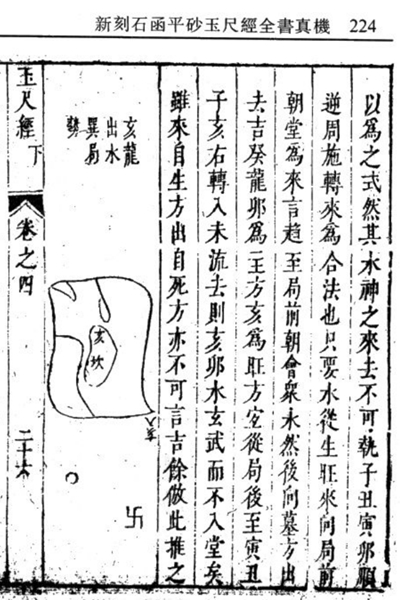 新刻石函平砂玉尺經全書真機 224
以爲之式然其水神之來去不可執子丑寅卯順
逆周施轉來爲合法也只要水從生旺來向局前
朝堂爲來言趋至局前朝會衆水然後向墓方出
去吉癸龍卯爲生方亥爲旺方宜從局後至寅丑
子亥右轉入未流去則亥卯水玄武而不入堂矣
雖來自生方出自死方亦不可言吉餘倣此推之
亥龍
出水
異局
勢
亥坎
卍
玉尺經 下
卷之四
二十六